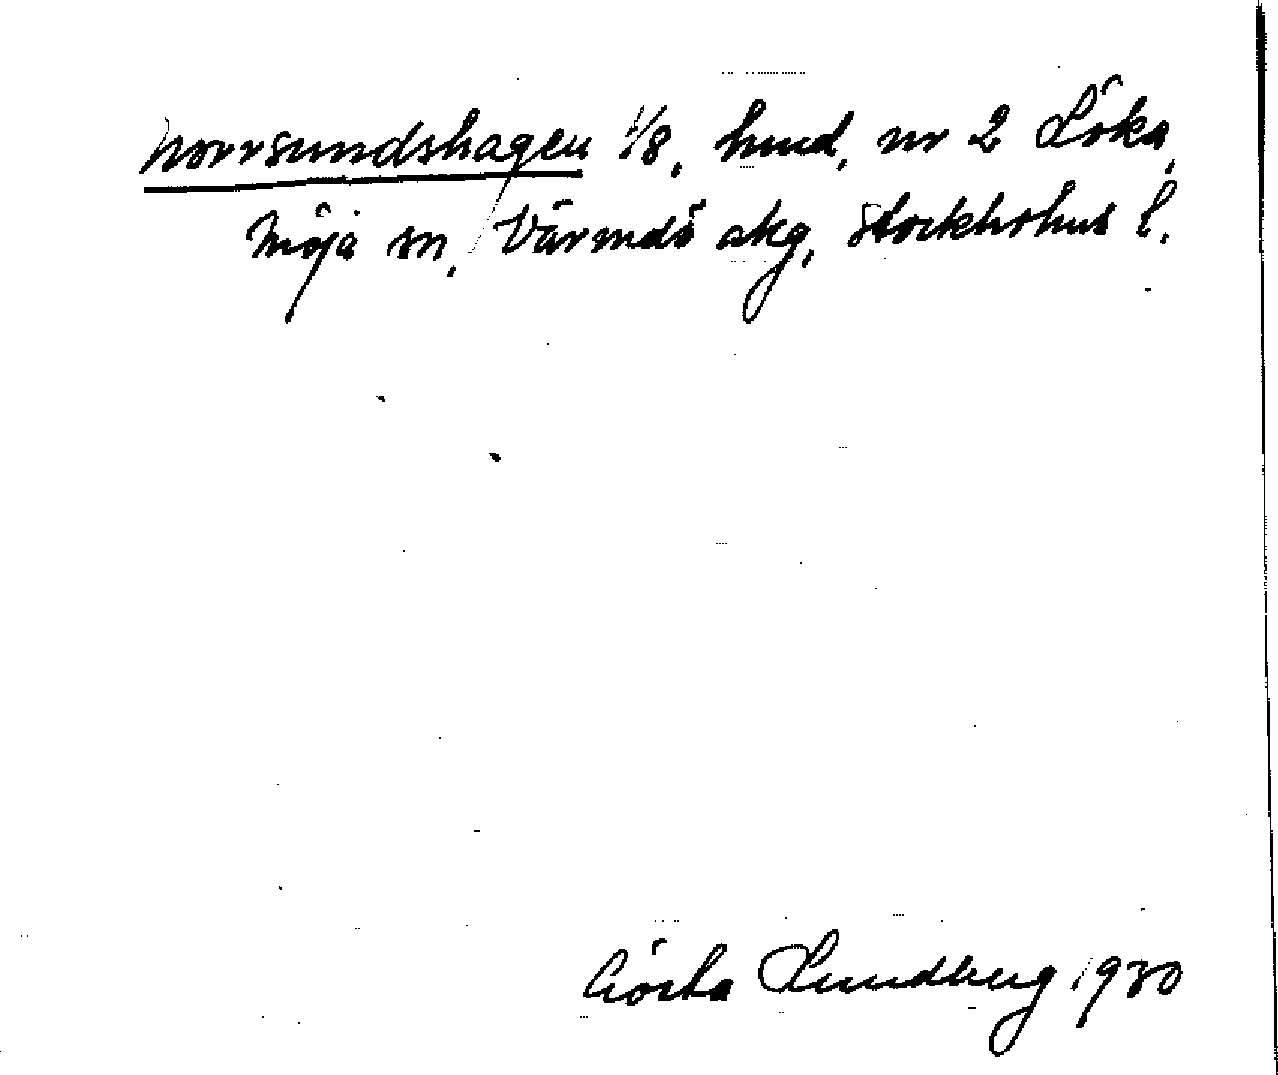 Norrsundshagen 1/8, hmd, nr 2 Löka,
Möja sn, Värmdö skg, Stockholms l.
Gösta Lundberg 1930